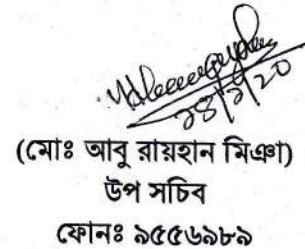 ২৪/৯/২০
(মোঃ আবু রায়হান মিঞা)
উপ সচিব
ফোনঃ ৯৫৫৬৯৮৯